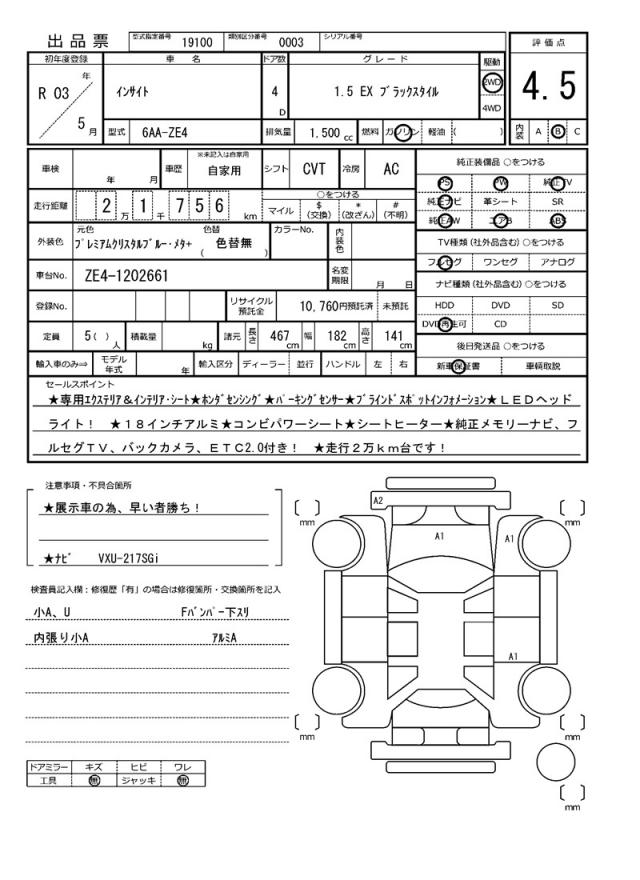 出品票 型式指定番号 19100 類別区分番号 0003 シリアル番号
評価点
4.5
内装 A B C
初年度登録 車名 ドア数 グレード 駆動
R 03 年 5 月 インサイト 4 D 1.5 EX ブラックスタイル 2WD 4WD
型式 6AA-ZE4 排気量 1.500 cc 燃料 ガソリン 軽油 ( )
車検 年 月 車歴 ※未記入は自家用 自家用 シフト CVT 冷房 AC
走行距離 2 万 1 千 7 5 6 km
○をつける
マイル $ (交換) * (改ざん) # (不明)
外装色 元色 プレミアムクリスタルブルー・メタ+ 色替 ( 色替無 ) カラーNo. 内装色
車台No. ZE4-1202661 名変期限 月 日
登録No. リサイクル預託金 10,760円預託済 未預託
定員 5( ) 人 積載量 kg 諸元 長さ 467 cm 幅 182 cm 高さ 141 cm
輸入車のみ⇒ モデル年式 年 輸入区分 ディーラー 並行 ハンドル 左 右
純正装備品 ○をつける
PS PW 純正TV
純正ナビ 革シート SR
純正AW エアB ABS
TV種類(社外品含む)○をつける
フルセグ ワンセグ アナログ
ナビ種類(社外品含む)○をつける
HDD DVD SD
DVD再生可 CD
後日発送品 ○をつける
新車保証書 車輌取説
セールスポイント
★専用エクステリア&インテリア・シート★ホンダセンシング★パーキングセンサー★ブラインドスポットインフォメーション★LEDヘッド
ライト! ★18インチアルミ★コンビパワーシート★シートヒーター★純正メモリーナビ、フ
ルセグTV、バックカメラ、ETC2.0付き! ★走行2万km台です!
注意事項・不具合箇所
★展示車の為、早い者勝ち!
★ナビ VXU-217SGi
検査員記入欄:修復歴「有」の場合は修復箇所・交換箇所を記入
小A、U Fバンパー下スリ
内張り小A アルミA
ドアミラー キズ ヒビ ワレ
工具 無 ジャッキ 無
A2
A1
A1
A1
mm
mm
mm
mm
mm